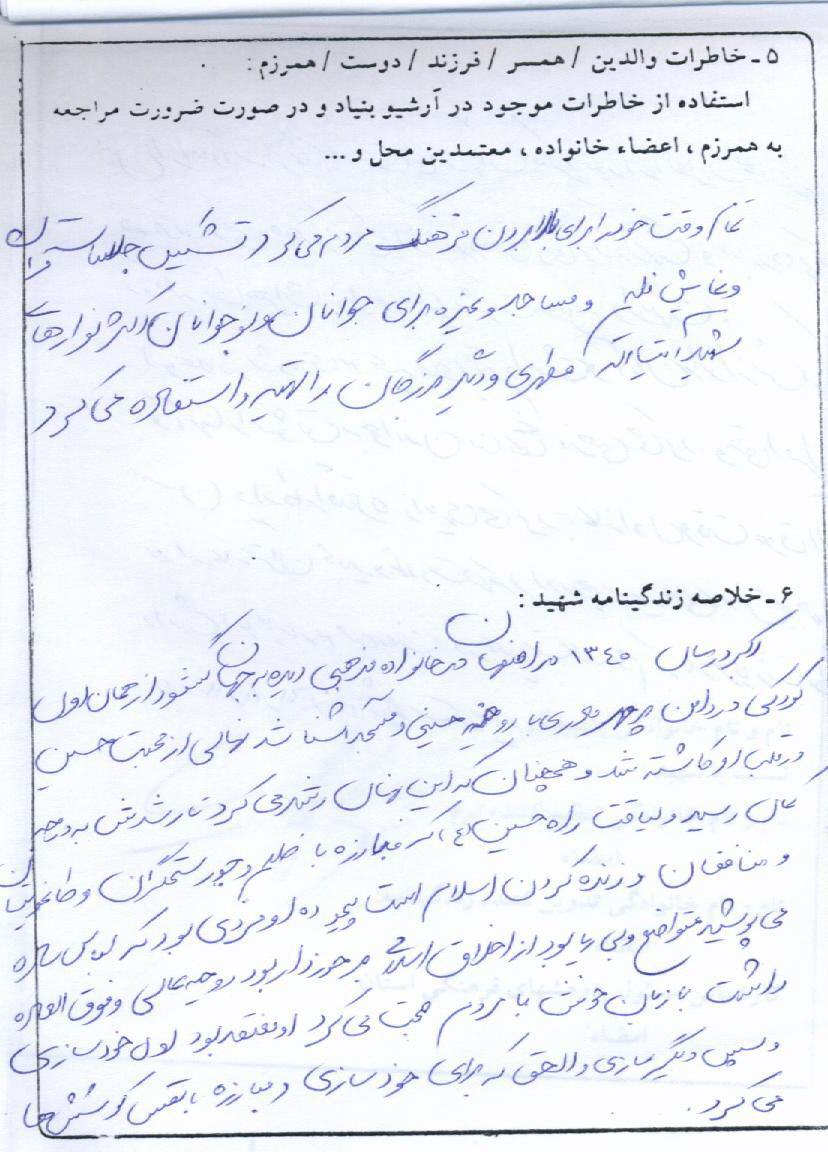 ۵ ـ خاطرات والدین / همسر / فرزند / دوست / همرزم :
استفاده از خاطرات موجود در آرشیو بنیاد و در صورت ضرورت مراجعه
به همرزم ، اعضاء خانواده ، معتمدین محل و ...
تمام وقت خود را برای بالا بردن فرهنگ مردم می کرد و تشکیل جلسات قرآن
و نمایش فیلم و مساجد و غیره برای جوانان و نوجوانان اکثر نوارهای
شهید آیت الله مطهری و دیگر بزرگان را تهیه و استفاده می کرد
۶ ـ خلاصه زندگینامه شهید :
در سال ۱۳۴۵ در اصفهان در خانواده مذهبی دیده به جهان گشود از همان اول
کودکی در دامن پدر و مادری با روحیه حسینی و متعهد آشنا شد نهالی از محبت حسین
در قلب او کاشته شد و همچنان که این نهال رشد می کرد تا رشدش به درجه
کمال رسید و لیاقت راه حسین (ع) که مبارزه با ظلم و جور ستمگران و طاغوتیان
و منافقان و زنده کردن اسلام است او فردی بود که لباس ساده
می پوشید متواضع و بی ریا بود از اخلاق اسلامی برخوردار بود روحیه عالی و فوق العاده
داشت با زبان خوش با مردم صحبت می کرد او معتقد بود اول خودسازی
و سپس دیگر سازی و الحق که برای خودسازی و مبارزه با نفس کوشش ها
می کرد .